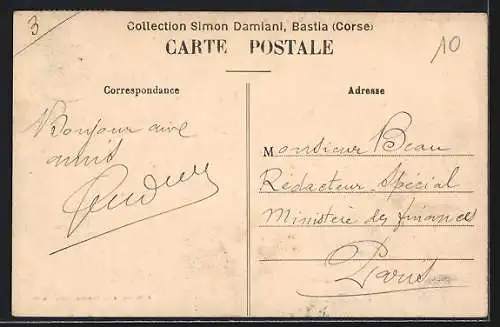 3
Collection Simon Damiani, Bastia (Corse)
CARTE POSTALE
10
Correspondance
Bonjour aux
amis
Adresse
Monsieur Beau
Rédacteur Spécial
Ministère des finances
Paris